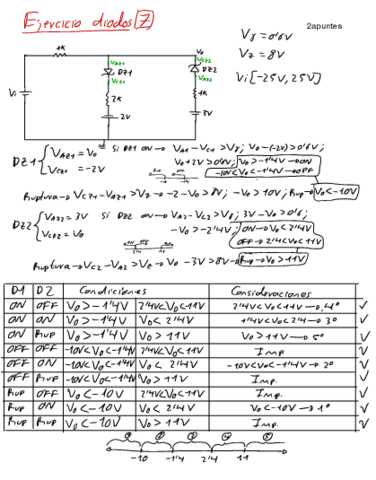 Ejercicio diodos 7
2apuntes
Vγ = 0'6v
Vz = 8V
Vi [-25V, 25V]
1K
Vo
Vi
DZ1
DZ2
2K
1K
2V
3V
DZ1 { VAZ1 = Vo
VCZ1 = -2V
Si DZ1 ON → VA1 - VC1 > Vγ; Vo - (-2v) > 0'6v;
Vo + 2V > 0'6V; Vo > -1'4V → ON
-10V < Vo < -1'4V → OFF
Ruptura → VCZ1 - VAZ1 > Vz → -2 - Vo > 8V; -Vo > 10V; Rup → Vo < -10V
DZ2 { VAZ2 = 3V
VCZ2 = Vo
Si DZ2 ON → VA2 - VC2 > Vγ; 3V - Vo > 0'6;
-Vo > -2'4V; ON → Vo < 2'4V
OFF → 2'4V < Vo < 11V
Ruptura → VC2 - VA2 > Vz → Vo - 3V > 8V → Rup → Vo > 11V
D1 D2 Condiciones Consideraciones
ON OFF Vo > -1'4V 2'4V < Vo < 11V 2'4V < Vo < 11V → 4º ✓
ON ON Vo > -1'4V Vo < 2'4V -1'4V < Vo < 2'4 → 3º ✓
ON Rup Vo > -1'4V Vo > 11V Vo > 11V → 5º ✓
OFF OFF -10V < Vo < -1'4V 2'4V < Vo < 11V Imp ✓
OFF ON -10V < Vo < -1'4V Vo < 2'4V -10V < Vo < -1'4V → 2º ✓
OFF Rup -10V < Vo < -1'4V Vo > 11V Imp. ✓
Rup OFF Vo < -10V 2'4V < Vo < 11V Imp. ✓
Rup ON Vo < -10V Vo < 2'4V Vo < -10V → 1º ✓
Rup Rup Vo < -10V Vo > 11V Imp. ✓
-10 -1'4 2'4 11